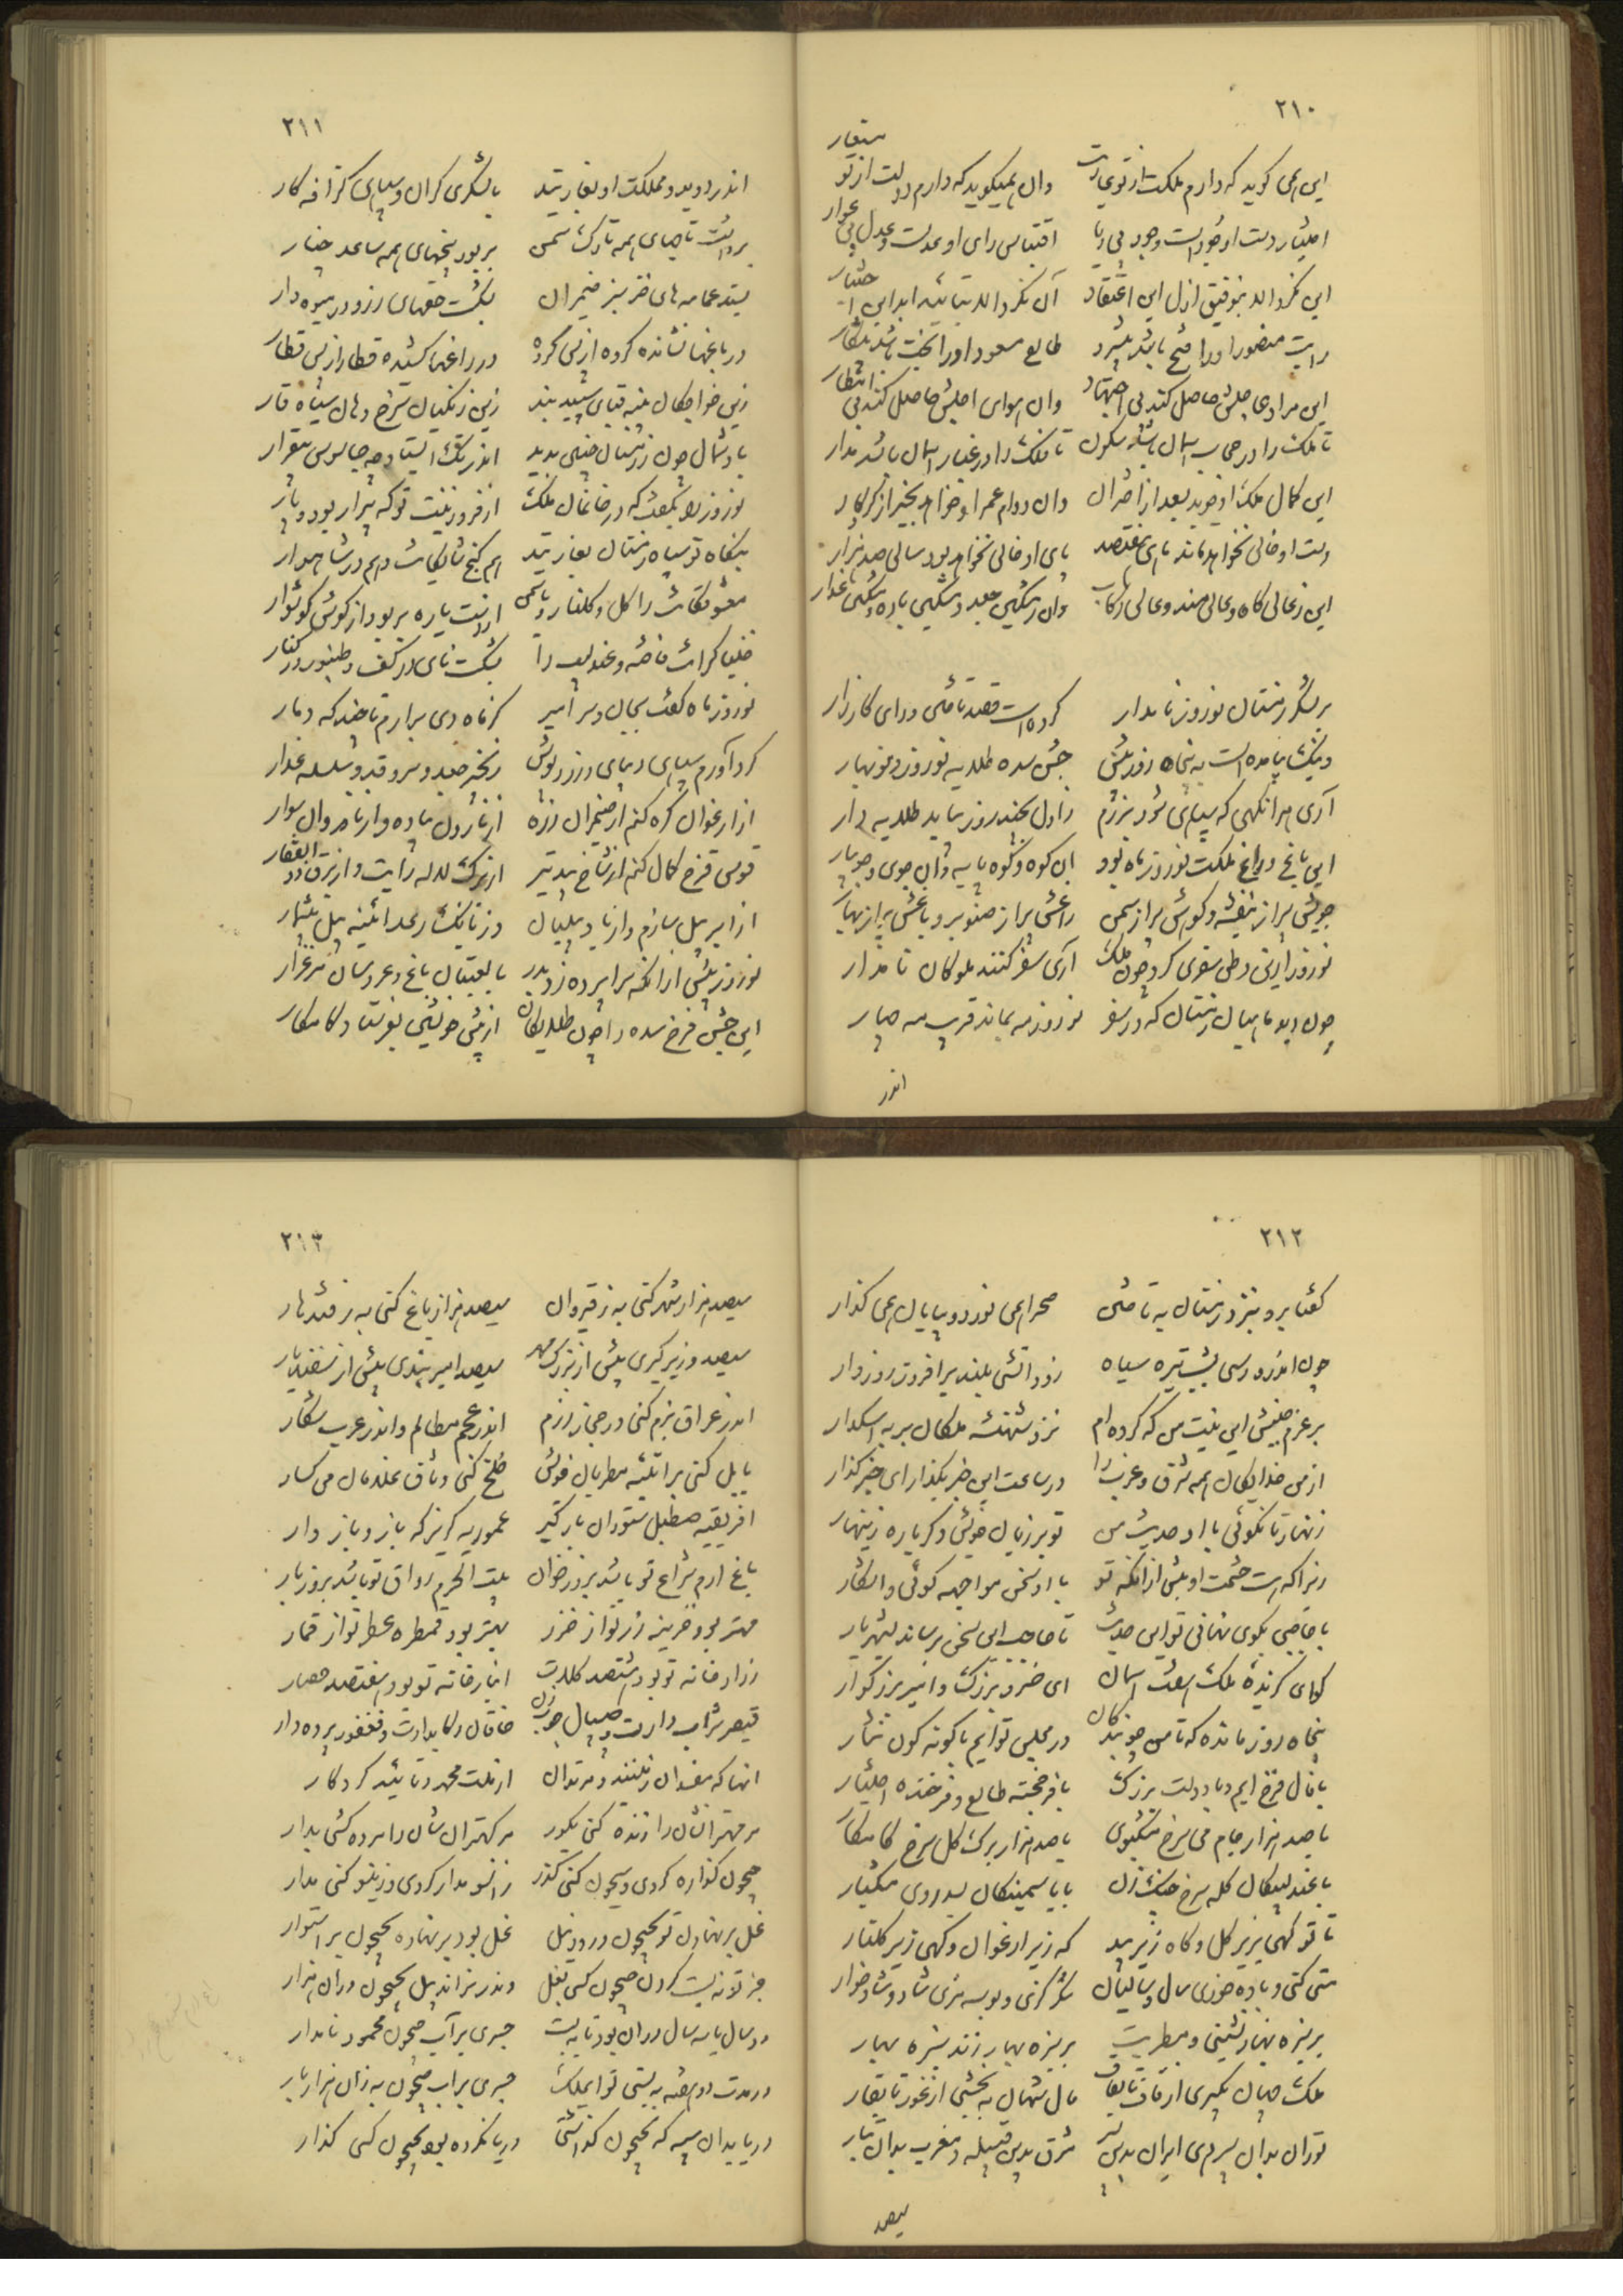 ۲۱۰
این همی گوید که دارم ملکت از تو عاریت وان همیگوید که دارم دولت از تو مستعار
اختیار دست او جود است و جود بی ریا اقتباس رای او عدلست و عدل بی عوار
این نگرداند بتوفیق ازل این اعتقاد آن نگرداند بتائید ابد این اختیار
رایت منصور او را فتح باشد پیشرو طالع مسعود او را بخت باشد پیشکار
این مرادی جلش حاصل کند بی اجتهاد وان هوای اجلش حاصل کند بی انتظار
تا ملک را در حجاب آسمان باشد سکون تا فلک را در غبار آسمان باشد مدار
این کمال ملک او جوید بعد از اختران وان دوام عمر او خواهد بخیر از کردگار
دست او خالی نخواهد ماند تا هفتصد پای او خالی نخواهد بود سالی صد هزار
این ز عالی گاه و عالی مسند و عالی رکاب وان ز مشکین جعد و مشکین باده و مشکین عذار
بر لشکر زمستان نوروز نامدار کرده است قصد تاختن و رای کارزار
وینک بیامده است به پنجاه روز پیش جشن سده طلایه نوروز و نوبهار
آری هر آنگهی که سپاهی شود برزم ز اول بچند روز بیاید طلایه دار
این باغ و راغ ملکت نوروز ماه بود این کوه و کوه پایه و این جوی و جویبار
جویش پر از بنفشه و کوهش پر از سمن راغش پر از صنوبر و باغش پر از بهار
نوروز ازین وطن سفری کرد چون ملک آری سفر کنند ملوکان نامدار
چون دید ماهیان زمستان که در سفر نوروز مه بماند قریب سه چهار
اندر
۲۱۱
اندر دوید و مملکت او بغارتید با لشکری گران و سپاهی گزافه کار
برداشت تاجهای همه تارک سمن بر بود پنجهای همه ساعد چنار
بستد عمامه های خز سبز ضیمران بشکست حقهای زر و در میوه دار
در باغها نشانده گروه از پس گروه در راغها کشیده قطار از پس قطار
زین خواجگان پنبه قبای سپید بند زین زنگیان سرخ دهان سیاه قار
باد شمال چون ز زمستان چنین بدید اندر تک ایستاد چو جاسوس بیقرار
نوروز را بگفت که در خانمان ملک از فر و زینت تو که پیرار بود و پار
بنگاه تو سپاه زمستان بغارتید هم گنج شایگانت و هم در شاهوار
معشوقگانت را گل و گلنار و یاسمن از دست یاره بربود از گوش گوشوار
خنیاگرانت فاخته و عندلیب را بشکست نای در کف و طنبور در کنار
نوروز ماه گفت بجان و سر امیر کز ماه دی برآرم تا چند گه دمار
گرد آورم سپاهی دیبای زرد پوش زنجیر جعد و سرو قد و سلسله عذار
از ارغوان کمر کنم از ضیمران زره از نارون پیاده و از نارون سوار
قوس قزح کمان کنم از شاخ بید تیر از برگ لاله رایت و از برق ذوالفقار
از ابر پیل سازم و از باد پیلبان وز بانگ رعد آئینه پیل بیشمار
نوروز پیش از آنکه سراپرده زد بدر با لعبتان باغ و عروسان مرغزار
این جشن فرخ سده را چون طلایگان از پیش خویشتن بفرستاد کامکار
۲۱۲
گفتا برو بنزد زمستان به تاختن صحرا همی نورد و بیابان همی گذار
چون اندرو رسی بشب تیره سیاه زود آتشی بلند برافروز روزوار
بر عزم جنبش این نیت من که کرده ام نزد شهنشه ملکان بر به اسکدار
از من خدایگان همه شرق و غرب را در ساعت این خبر بگذار ای خبر گذار
زنهار تا نگوئی با او حدیث من تو بر زبان خویش و گر باره زینهار
زیرا که هست حشمت او بیش از آنکه تو با او سخن مواجهه گوئی و آشکار
با حاجبی بگوی نهانی تو این حدیث تا حاجب این سخن برساند بشهریار
گو ای گزیده ملک هفت آسمان ای خسرو بزرگ و امیر بزرگوار
پنجاه روز مانده که تا من چو بندگان در مجلس تو ایم با گونه گون نثار
با فال فرخ ایم و با دولت بزرگ با فر خجسته طالع و فرخنده اختیار
با صد هزار جام می سرخ مشکبوی با صد هزار برگ گل سرخ کامکار
با عندلیبکان کله سرخ چنگ زن با یاسمینکان بسد روی مشکبار
تا تو گهی بزیر گل و گاه زیر بید گه زیر ارغوان و گهی زیر گلنار
مستی کنی و باده خوری سال و سالیان شکر گزی و بوسه مزی شاد و شادخوار
بر سبزه بهار نشینی و مطربت بر سبزه بهار زند سبزه بهار
ملک جهان بگیری از قاف تا بقاف مال شهان به بخشی از غور تا بقار
توران بدان پسر دهی ایران بدین پسر شرق بدین قبیله و مغرب بدان تبار
سیصد
۲۱۳
سیصد هزار شهر کنی به ز قیروان سیصد هزار باغ کنی به ز قندهار
سیصد وزیر گیری بیش از بزرگمهر سیصد امیر بندی بیش از سفندیار
اندر عراق بزم کنی در حجاز رزم اندر عجم مظالم و اندر عرب شکار
بابل کنی سراتشه مطربان خویش خلخ کنی وثاق غلامان می گسار
افریقیه صطبل ستوران بارگیر عموریه گریزگه باز و بازدار
باغ ارم شراع تو باشد بروز خوان بیت الحرم رواق تو باشد بروز بار
مهتر بود خزینه زر تو از خزر بهتر بود قمطره عطر تو از قمار
زرادخانه تو بود هشتصد کلات انبار خانه تو بود هفتصد حصار
قیصر شراب دارت و چیپال چوب زن خاقان رکابدارت و فغفور پرده دار
آنها که مفسدان زمینند و مرتدان از ملت محمد و تائید کردگار
مر مهترانشان را زنده کنی بگور مر کهترانشان را مرده کشی بدار
جیحون گذاره کردی و سیحون کنی گذر زانسو مدار کردی و زینسو کنی مدار
غل بر نهادن تو بجیحون و رود نیل غل بود بر نهاده بجیحون بر استوار
جز تو نبست گردن جیحون کسی بغل وندر نراند پیل بجیحون در آن هزار
در سال یا سه سال در آن بود تا ببست جسری بر آب جیحون محمود نامدار
در مدت دو هفته به بستی تو ای ملک جسری بر آب جیحون به زان هزار بار
دریا بدان سپه که بجیحون گذاشتی دریا نکرده بود بجیحون کسی گذار